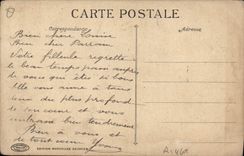 CARTE POSTALE
Correspondance
Adresse
Bien chère Louise
Bien cher Parrain
Votre filleule regrette
le bon temps passé auprès
de vous qui êtes si bons
Elle vous aime à tous
deux du plus profond
de son cœur et vous
embrasse bien tendrement
Bien à vous et
de tout cœur
Yvonne